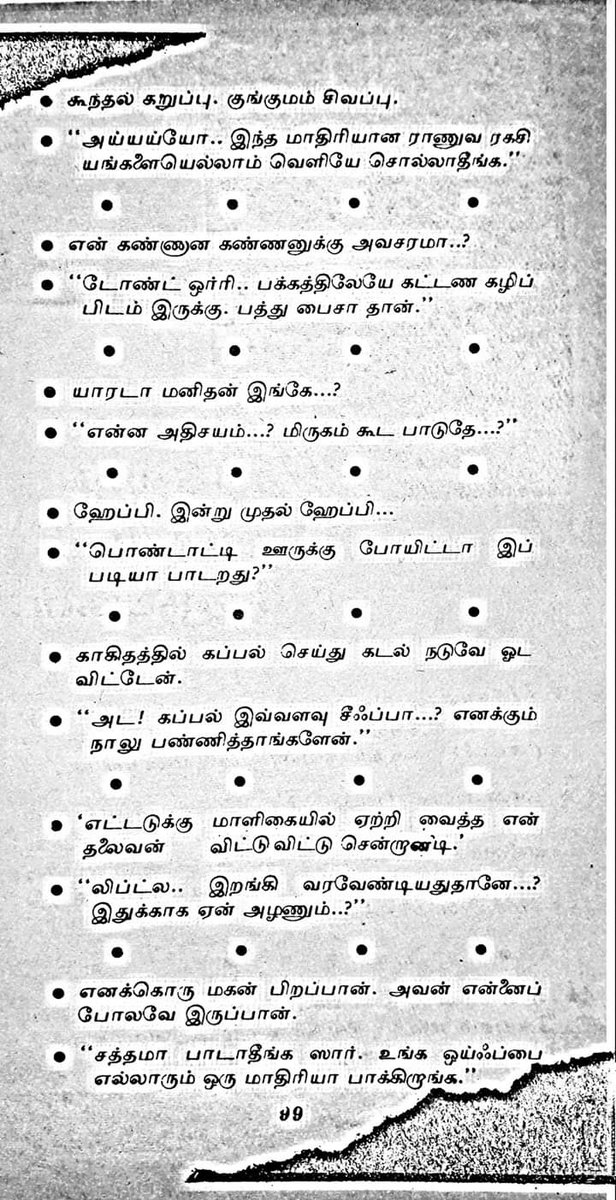 ● கூந்தல் கறுப்பு. குங்குமம் சிவப்பு.
● “அய்யய்யோ.. இந்த மாதிரியான ராணுவ ரகசி
யங்களையெல்லாம் வெளியே சொல்லாதீங்க.”
● ● ● ●
● என் கண்ணான கண்ணனுக்கு அவசரமா..?
● “டோண்ட் ஒர்ரி.. பக்கத்திலேயே கட்டண கழிப்
பிடம் இருக்கு. பத்து பைசா தான்.”
● ● ● ●
● யாரடா மனிதன் இங்கே...?
● “என்ன அதிசயம்...? மிருகம் கூட பாடுதே...?”
● ● ● ●
● ஹேப்பி. இன்று முதல் ஹேப்பி...
● “பொண்டாட்டி ஊருக்கு போயிட்டா இப்
படியா பாடறது?”
● ● ● ●
● காகிதத்தில் கப்பல் செய்து கடல் நடுவே ஓட
விட்டேன்.
● “அட! கப்பல் இவ்வளவு சீஃப்பா...? எனக்கும்
நாலு பண்ணித்தாங்களேன்.”
● ● ● ●
● ‘எட்டடுக்கு மாளிகையில் ஏற்றி வைத்த என்
தலைவன் விட்டுவிட்டு சென்றானடி.’
● “லிப்ட்ல.. இறங்கி வரவேண்டியதுதானே...?
இதுக்காக ஏன் அழணும்..?”
● ● ● ●
● எனக்கொரு மகன் பிறப்பான். அவன் என்னைப்
போலவே இருப்பான்.
● “சத்தமா பாடாதீங்க ஸார். உங்க ஒய்ஃப்பை
எல்லாரும் ஒரு மாதிரியா பாக்கிறாங்க.”
99